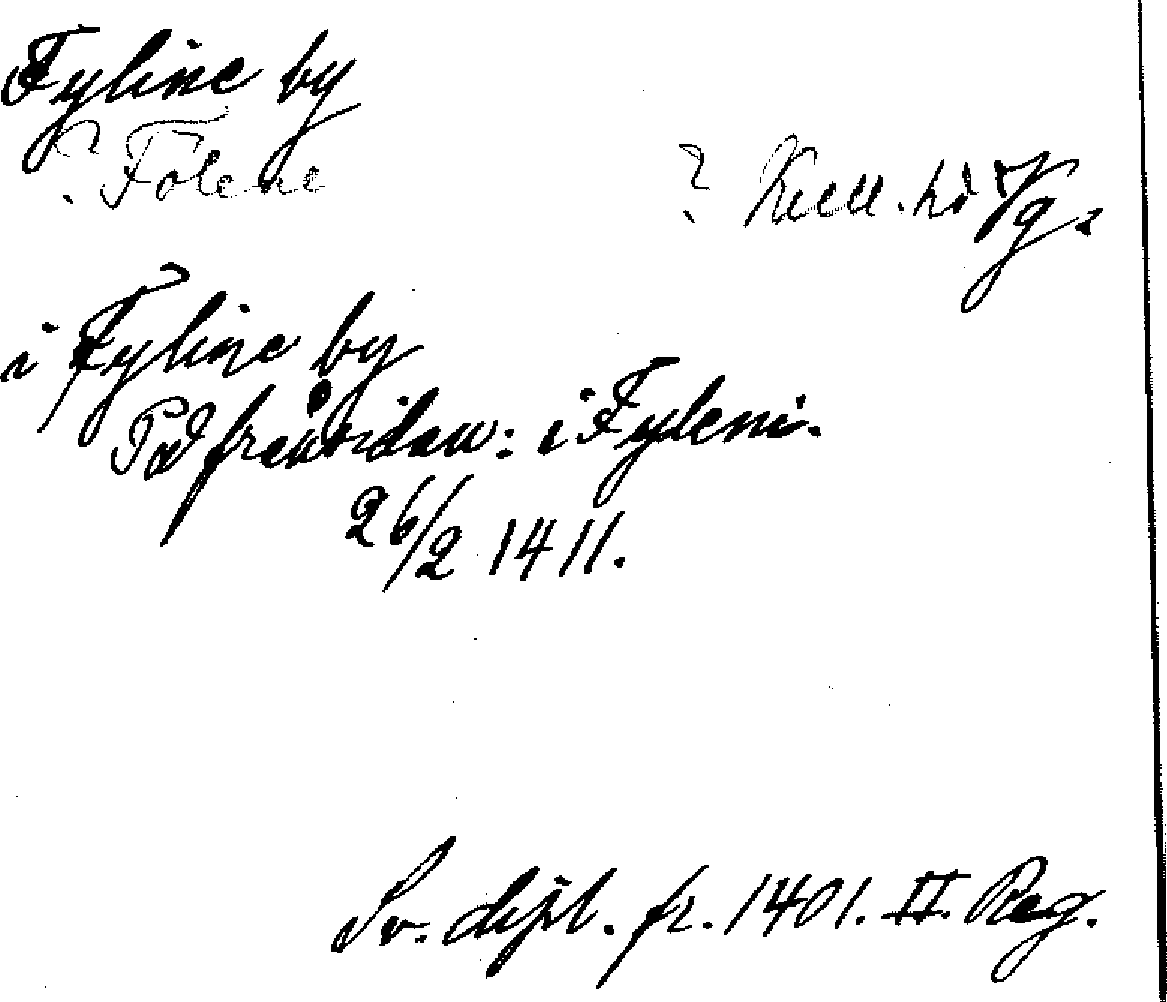 Fyline by
? Folene ? Kull. hd Vg.
i Fyline by
På fråmsidan: i Fyleni.
26/2 1411.
Sv. dipl. fr. 1401. II. Reg.